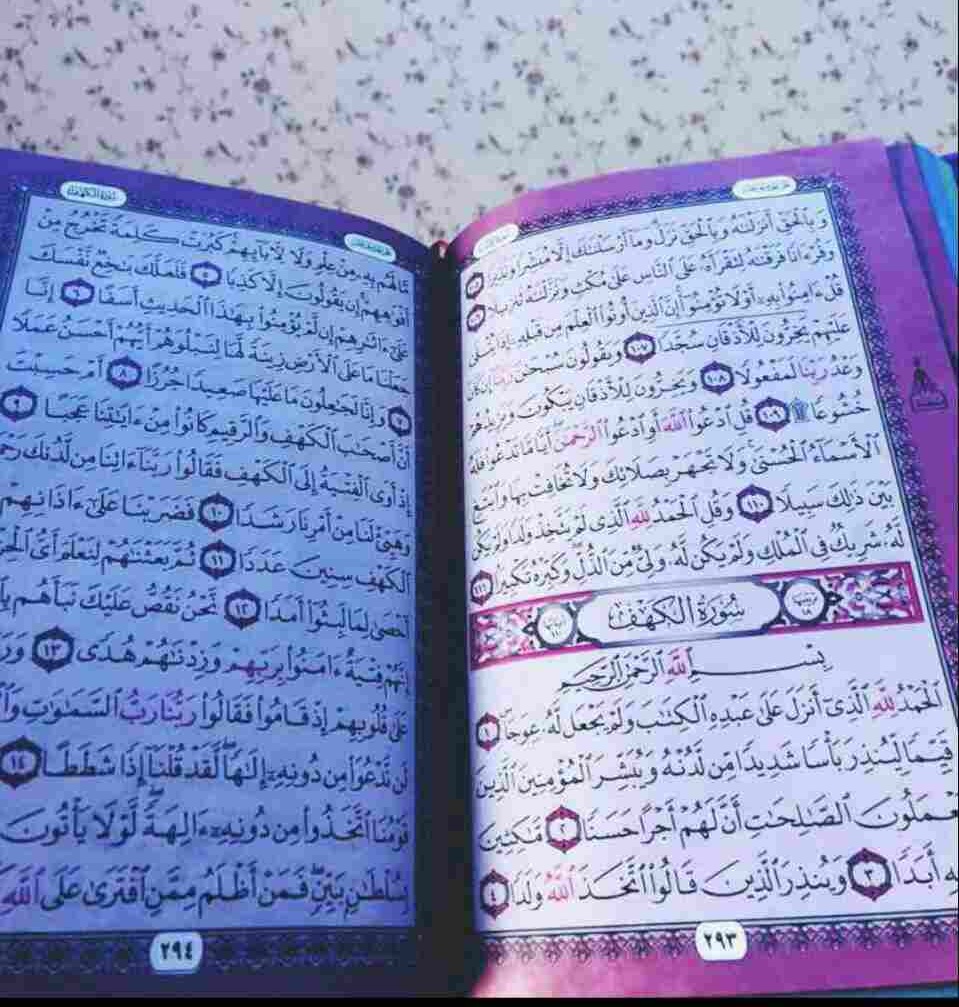 وَبِٱلْحَقِّ أَنزَلْنَٰهُ وَبِٱلْحَقِّ نَزَلَ وَمَآ أَرْسَلْنَٰكَ إِلَّا مُبَشِّرًا وَنَذِيرًا ١٠٥
وَقُرْءَانًا فَرَقْنَٰهُ لِتَقْرَأَهُۥ عَلَى ٱلنَّاسِ عَلَىٰ مُكْثٍ وَنَزَّلْنَٰهُ تَنزِيلًا ١٠٦
قُلْ ءَامِنُوا۟ بِهِۦٓ أَوْ لَا تُؤْمِنُوٓا۟ إِنَّ ٱلَّذِينَ أُوتُوا۟ ٱلْعِلْمَ مِن قَبْلِهِۦٓ إِذَا يُتْلَىٰ
عَلَيْهِمْ يَخِرُّونَ لِلْأَذْقَانِ سُجَّدًا ١٠٧ وَيَقُولُونَ سُبْحَٰنَ رَبِّنَآ إِن كَانَ
وَعْدُ رَبِّنَا لَمَفْعُولًا ١٠٨ وَيَخِرُّونَ لِلْأَذْقَانِ يَبْكُونَ وَيَزِيدُهُمْ
خُشُوعًا ۩ ١٠٩ قُلِ ٱدْعُوا۟ ٱللَّهَ أَوِ ٱدْعُوا۟ ٱلرَّحْمَٰنَ أَيًّا مَّا تَدْعُوا۟ فَلَهُ
ٱلْأَسْمَآءُ ٱلْحُسْنَىٰ وَلَا تَجْهَرْ بِصَلَاتِكَ وَلَا تُخَافِتْ بِهَا وَٱبْتَغِ
بَيْنَ ذَٰلِكَ سَبِيلًا ١١٠ وَقُلِ ٱلْحَمْدُ لِلَّهِ ٱلَّذِى لَمْ يَتَّخِذْ وَلَدًا وَلَمْ يَكُن
لَّهُۥ شَرِيكٌ فِى ٱلْمُلْكِ وَلَمْ يَكُن لَّهُۥ وَلِىٌّ مِّنَ ٱلذُّلِّ وَكَبِّرْهُ تَكْبِيرًۢا ١١١
سُورَةُ الكَهْفِ
بِسْمِ ٱللَّهِ ٱلرَّحْمَٰنِ ٱلرَّحِيمِ
ٱلْحَمْدُ لِلَّهِ ٱلَّذِىٓ أَنزَلَ عَلَىٰ عَبْدِهِ ٱلْكِتَٰبَ وَلَمْ يَجْعَل لَّهُۥ عِوَجَا ١
قَيِّمًا لِّيُنذِرَ بَأْسًا شَدِيدًا مِّن لَّدُنْهُ وَيُبَشِّرَ ٱلْمُؤْمِنِينَ ٱلَّذِينَ
يَعْمَلُونَ ٱلصَّٰلِحَٰتِ أَنَّ لَهُمْ أَجْرًا حَسَنًا ٢ مَّٰكِثِينَ
فِيهِ أَبَدًا ٣ وَيُنذِرَ ٱلَّذِينَ قَالُوا۟ ٱتَّخَذَ ٱللَّهُ وَلَدًا ٤
٢٩٣
سُورَةُ الكَهْفِ
مَّا لَهُم بِهِۦ مِنْ عِلْمٍ وَلَا لِءَابَآئِهِمْ كَبُرَتْ كَلِمَةً تَخْرُجُ مِنْ
أَفْوَٰهِهِمْ إِن يَقُولُونَ إِلَّا كَذِبًا ٥ فَلَعَلَّكَ بَٰخِعٌ نَّفْسَكَ
عَلَىٰٓ ءَاثَٰرِهِمْ إِن لَّمْ يُؤْمِنُوا۟ بِهَٰذَا ٱلْحَدِيثِ أَسَفًا ٦ إِنَّا
جَعَلْنَا مَا عَلَى ٱلْأَرْضِ زِينَةً لَّهَا لِنَبْلُوَهُمْ أَيُّهُمْ أَحْسَنُ عَمَلًا
٧ وَإِنَّا لَجَٰعِلُونَ مَا عَلَيْهَا صَعِيدًا جُرُزًا ٨ أَمْ حَسِبْتَ
أَنَّ أَصْحَٰبَ ٱلْكَهْفِ وَٱلرَّقِيمِ كَانُوا۟ مِنْ ءَايَٰتِنَا عَجَبًا ٩
إِذْ أَوَى ٱلْفِتْيَةُ إِلَى ٱلْكَهْفِ فَقَالُوا۟ رَبَّنَآ ءَاتِنَا مِن لَّدُنكَ رَحْمَ
وَهَيِّئْ لَنَا مِنْ أَمْرِنَا رَشَدًا ١٠ فَضَرَبْنَا عَلَىٰٓ ءَاذَانِهِمْ
ٱلْكَهْفِ سِنِينَ عَدَدًا ١١ ثُمَّ بَعَثْنَٰهُمْ لِنَعْلَمَ أَىُّ ٱلْحِزْ
أَحْصَىٰ لِمَا لَبِثُوٓا۟ أَمَدًا ١٢ نَّحْنُ نَقُصُّ عَلَيْكَ نَبَأَهُم بِٱ
إِنَّهُمْ فِتْيَةٌ ءَامَنُوا۟ بِرَبِّهِمْ وَزِدْنَٰهُمْ هُدًى ١٣ وَرَ
عَلَىٰ قُلُوبِهِمْ إِذْ قَامُوا۟ فَقَالُوا۟ رَبُّنَا رَبُّ ٱلسَّمَٰوَٰتِ وَٱلْ
لَن نَّدْعُوَا۟ مِن دُونِهِۦٓ إِلَٰهًا لَّقَدْ قُلْنَآ إِذًا شَطَطًا ١٤
قَوْمُنَا ٱتَّخَذُوا۟ مِن دُونِهِۦٓ ءَالِهَةً لَّوْلَا يَأْتُونَ
بِسُلْطَٰنٍۭ بَيِّنٍ فَمَنْ أَظْلَمُ مِمَّنِ ٱفْتَرَىٰ عَلَى ٱللَّهِ
٢٩٤